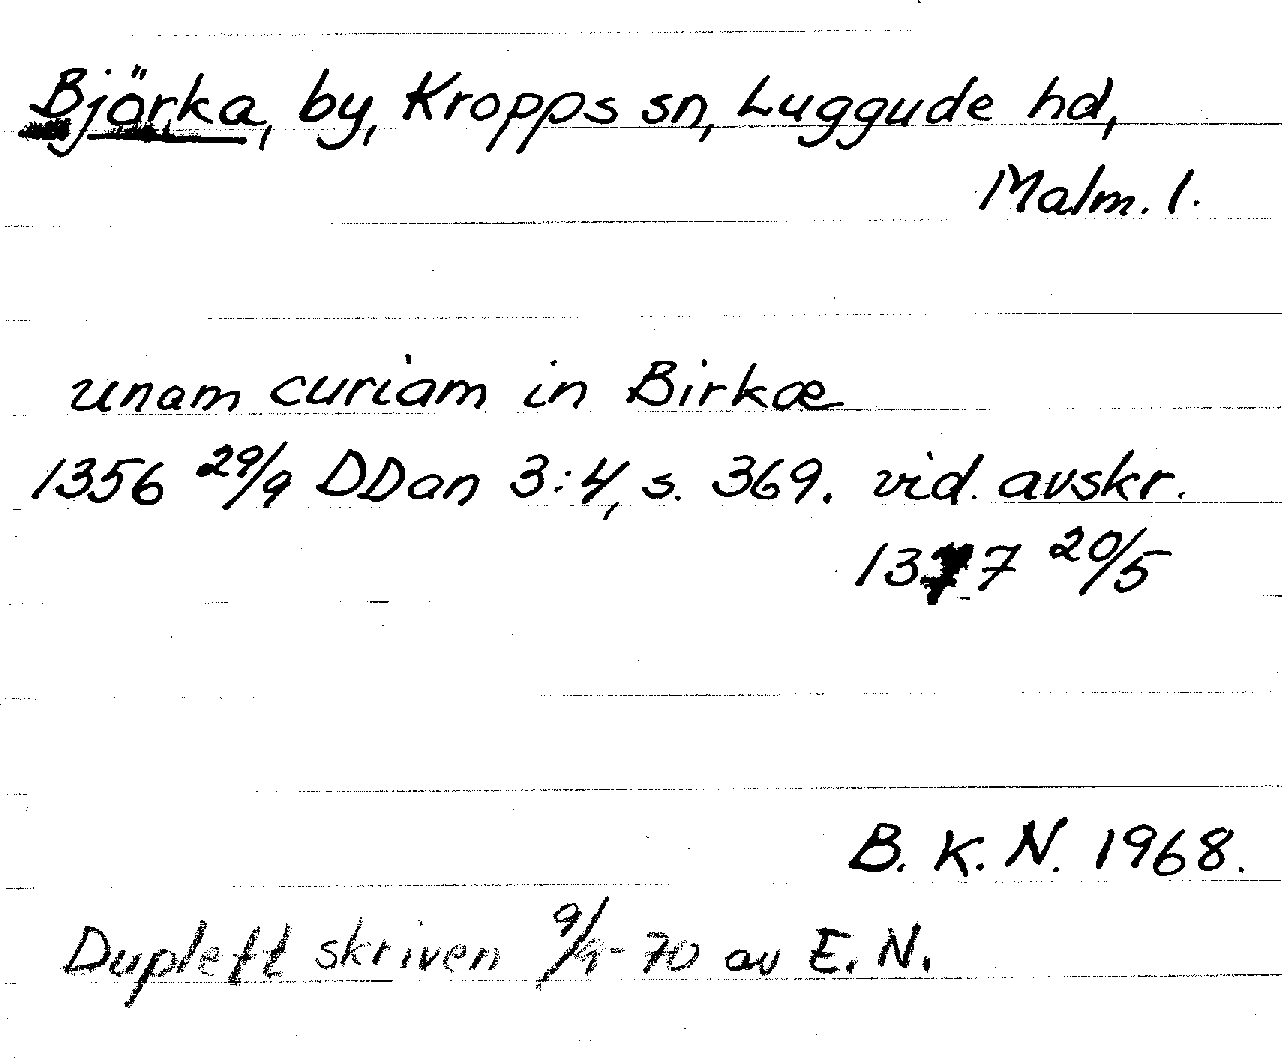 Björka, by, Kropps sn, Luggude hd,
Malm. l.
unam curiam in Birkæ
1356 29/9 DDan 3:4, s. 369. vid. avskr.
1377 20/5
B. K. N. 1968.
Duplett skriven 9/9-70 av E. N.